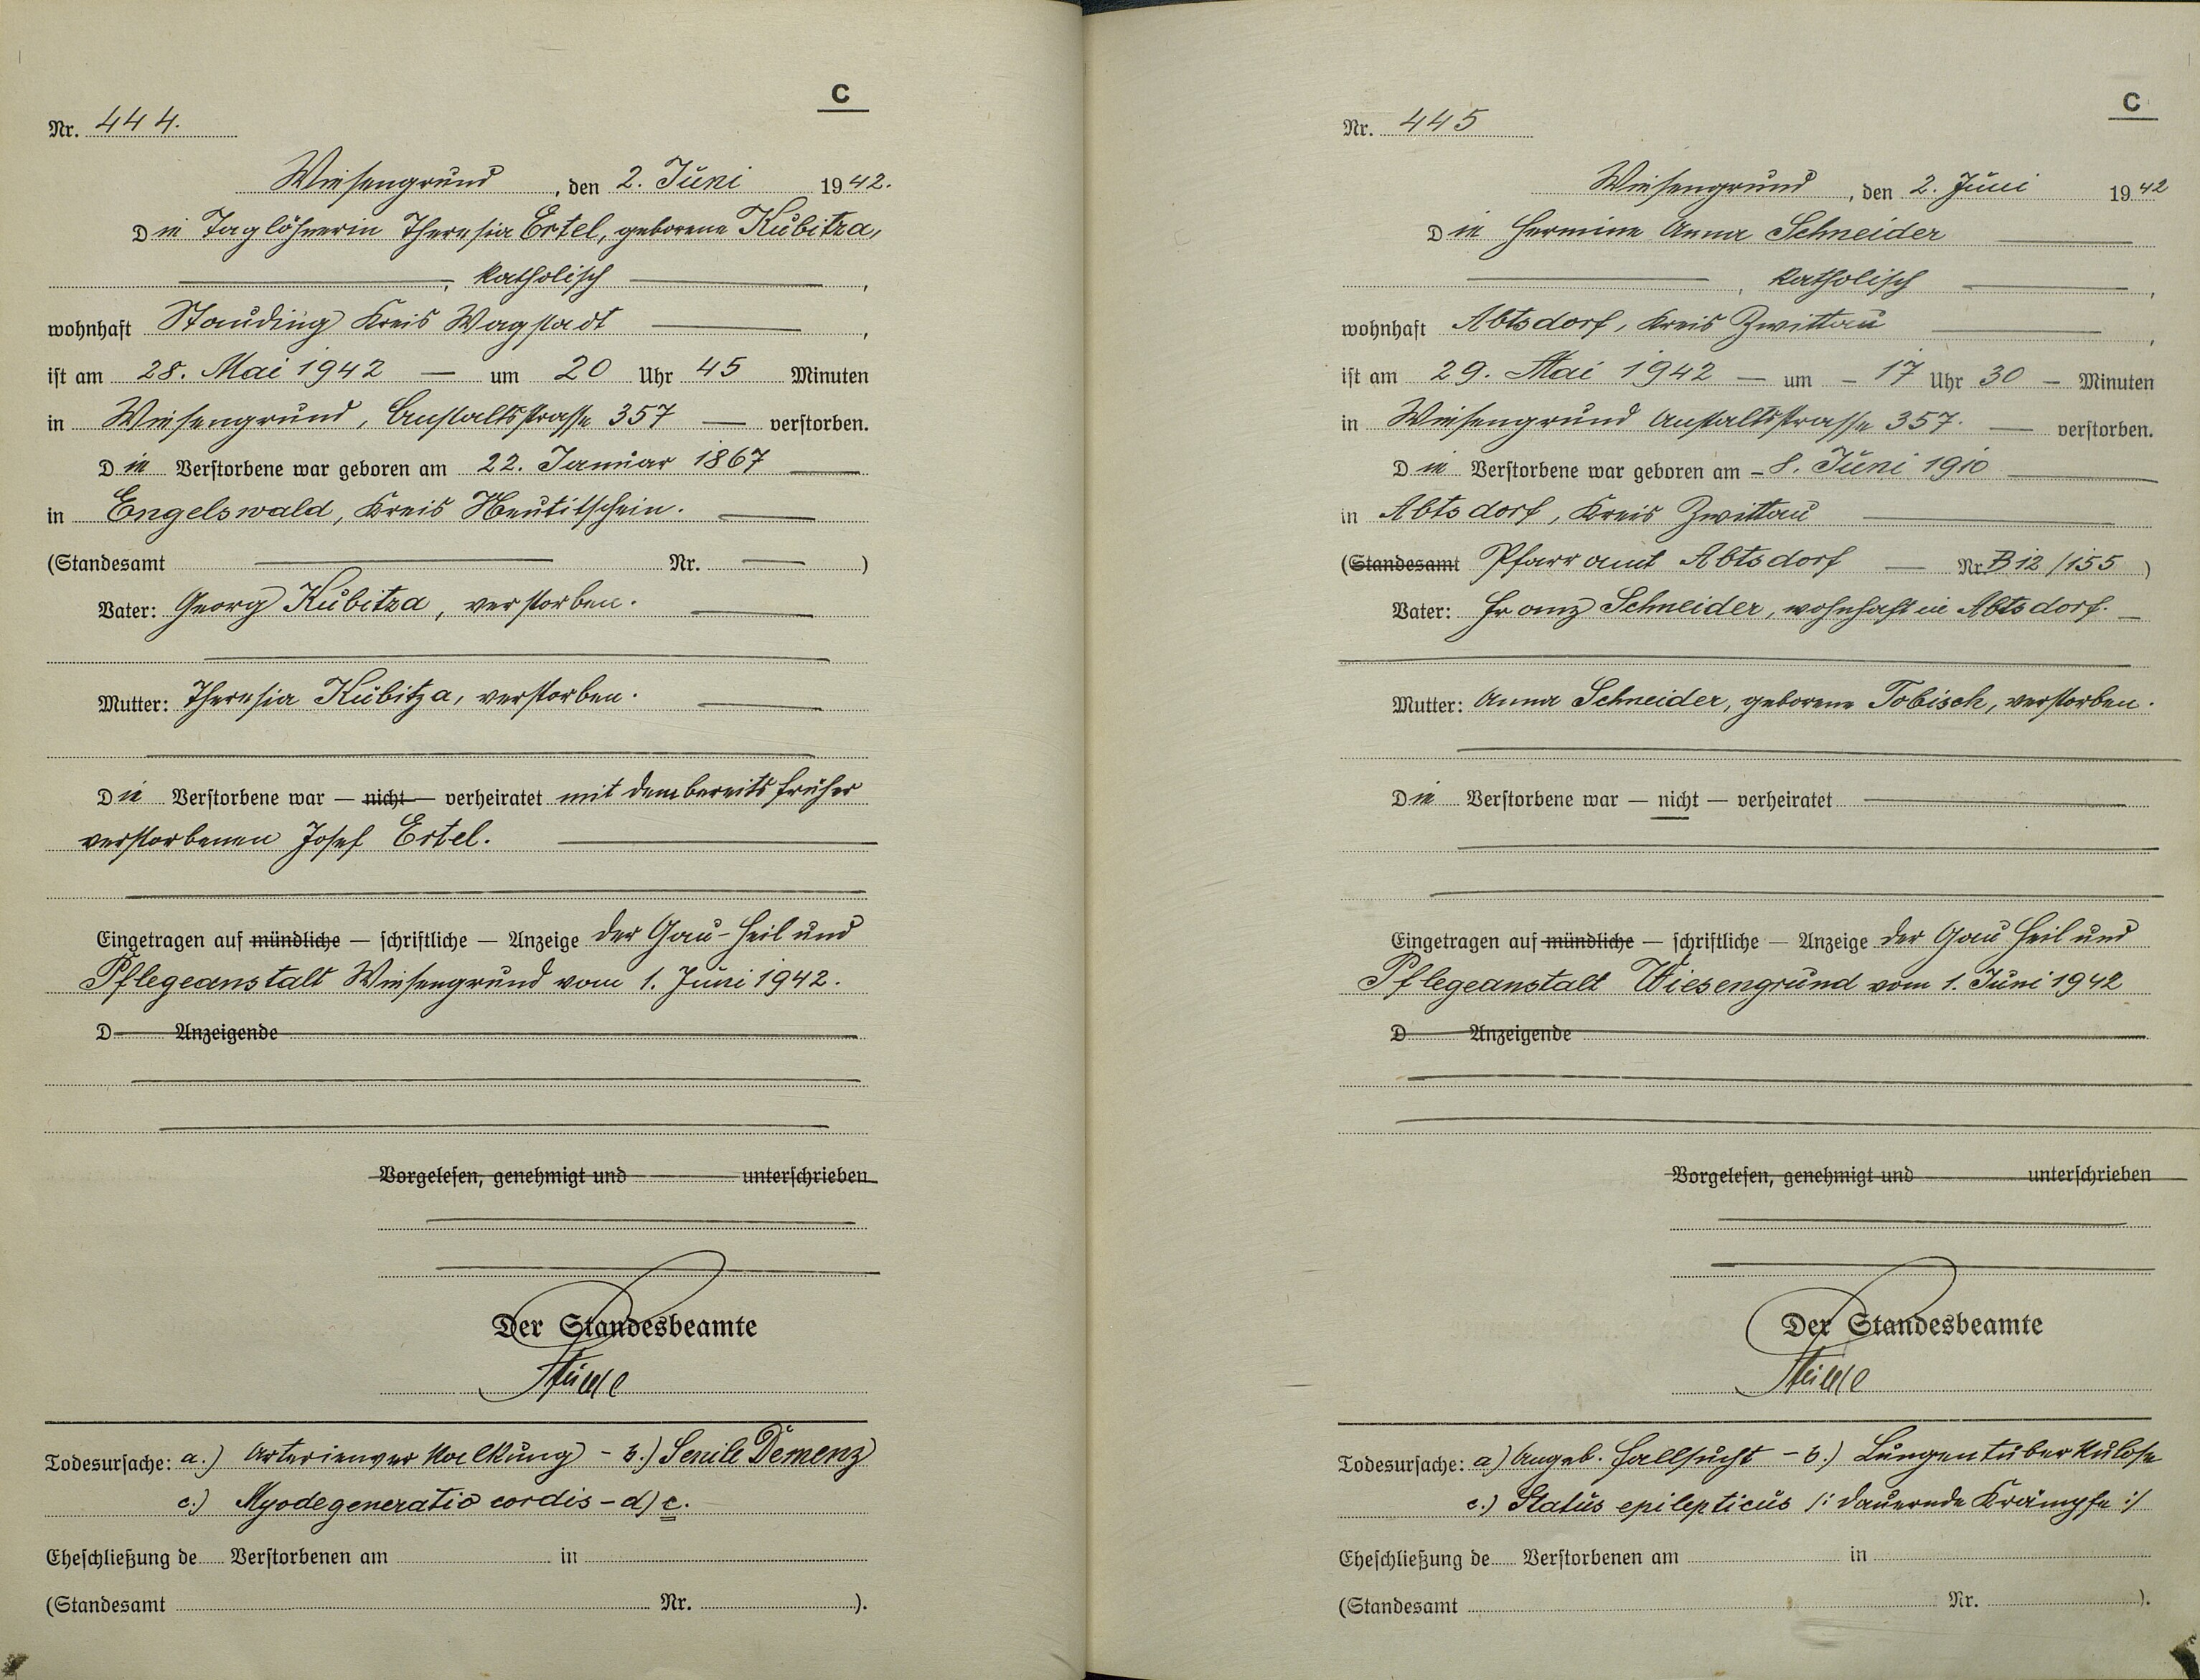 C
Nr. 444.
Wiesengrund, den 2. Juni 1942.
Die Taglöhnerin Theresia Ertel, geborene Kubitza,
, katholisch ,
wohnhaft Stauding Kreis Wagstadt ,
ist am 28. Mai 1942 — um 20 Uhr 45 Minuten
in Wiesengrund, Anstaltsstrasse 357 — verstorben.
Die Verstorbene war geboren am 22. Januar 1867
in Engelswald, Kreis Neutitschein.
(Standesamt — Nr. — )
Vater: Georg Kubitza, verstorben.
Mutter: Theresia Kubitza, verstorben.
Die Verstorbene war — nicht — verheiratet mit dem bereits früher
verstorbenen Josef Ertel.
Eingetragen auf mündliche — schriftliche — Anzeige der Gau-Heil und
Pflegeanstalt Wiesengrund vom 1. Juni 1942.
D Anzeigende
Vorgelesen, genehmigt und unterschrieben
Der Standesbeamte
Todesursache: a.) Arterienverkalkung - b.) Senile Demenz
c.) Myodegeneratio cordis - d) c.
Eheschließung de Verstorbenen am in
(Standesamt Nr. ).
C
Nr. 445
Wiesengrund, den 2. Juni 1942
Die Hermine Anna Schneider
, katholisch ,
wohnhaft Abtsdorf, Kreis Zwittau ,
ist am 29. Mai 1942 — um - 17 Uhr 30 - Minuten
in Wiesengrund Anstaltsstrasse 357. — verstorben.
Die Verstorbene war geboren am - 8. Juni 1910
in Abtsdorf, Kreis Zwittau
(Standesamt Pfarramt Abtsdorf — Nr. B 12/155 )
Vater: Franz Schneider, wohnhaft in Abtsdorf. —
Mutter: Anna Schneider, geborene Tobisch, verstorben.
Die Verstorbene war — nicht — verheiratet
Eingetragen auf mündliche — schriftliche — Anzeige der Gau Heil und
Pflegeanstalt Wiesengrund vom 1. Juni 1942
D Anzeigende
Vorgelesen, genehmigt und unterschrieben
Der Standesbeamte
Todesursache: a) Angeb. Fallsucht - b.) Lungentuberkulose
c.) Status epilepticus /: dauernde Krämpfe :/
Eheschließung de Verstorbenen am in
(Standesamt Nr. ).